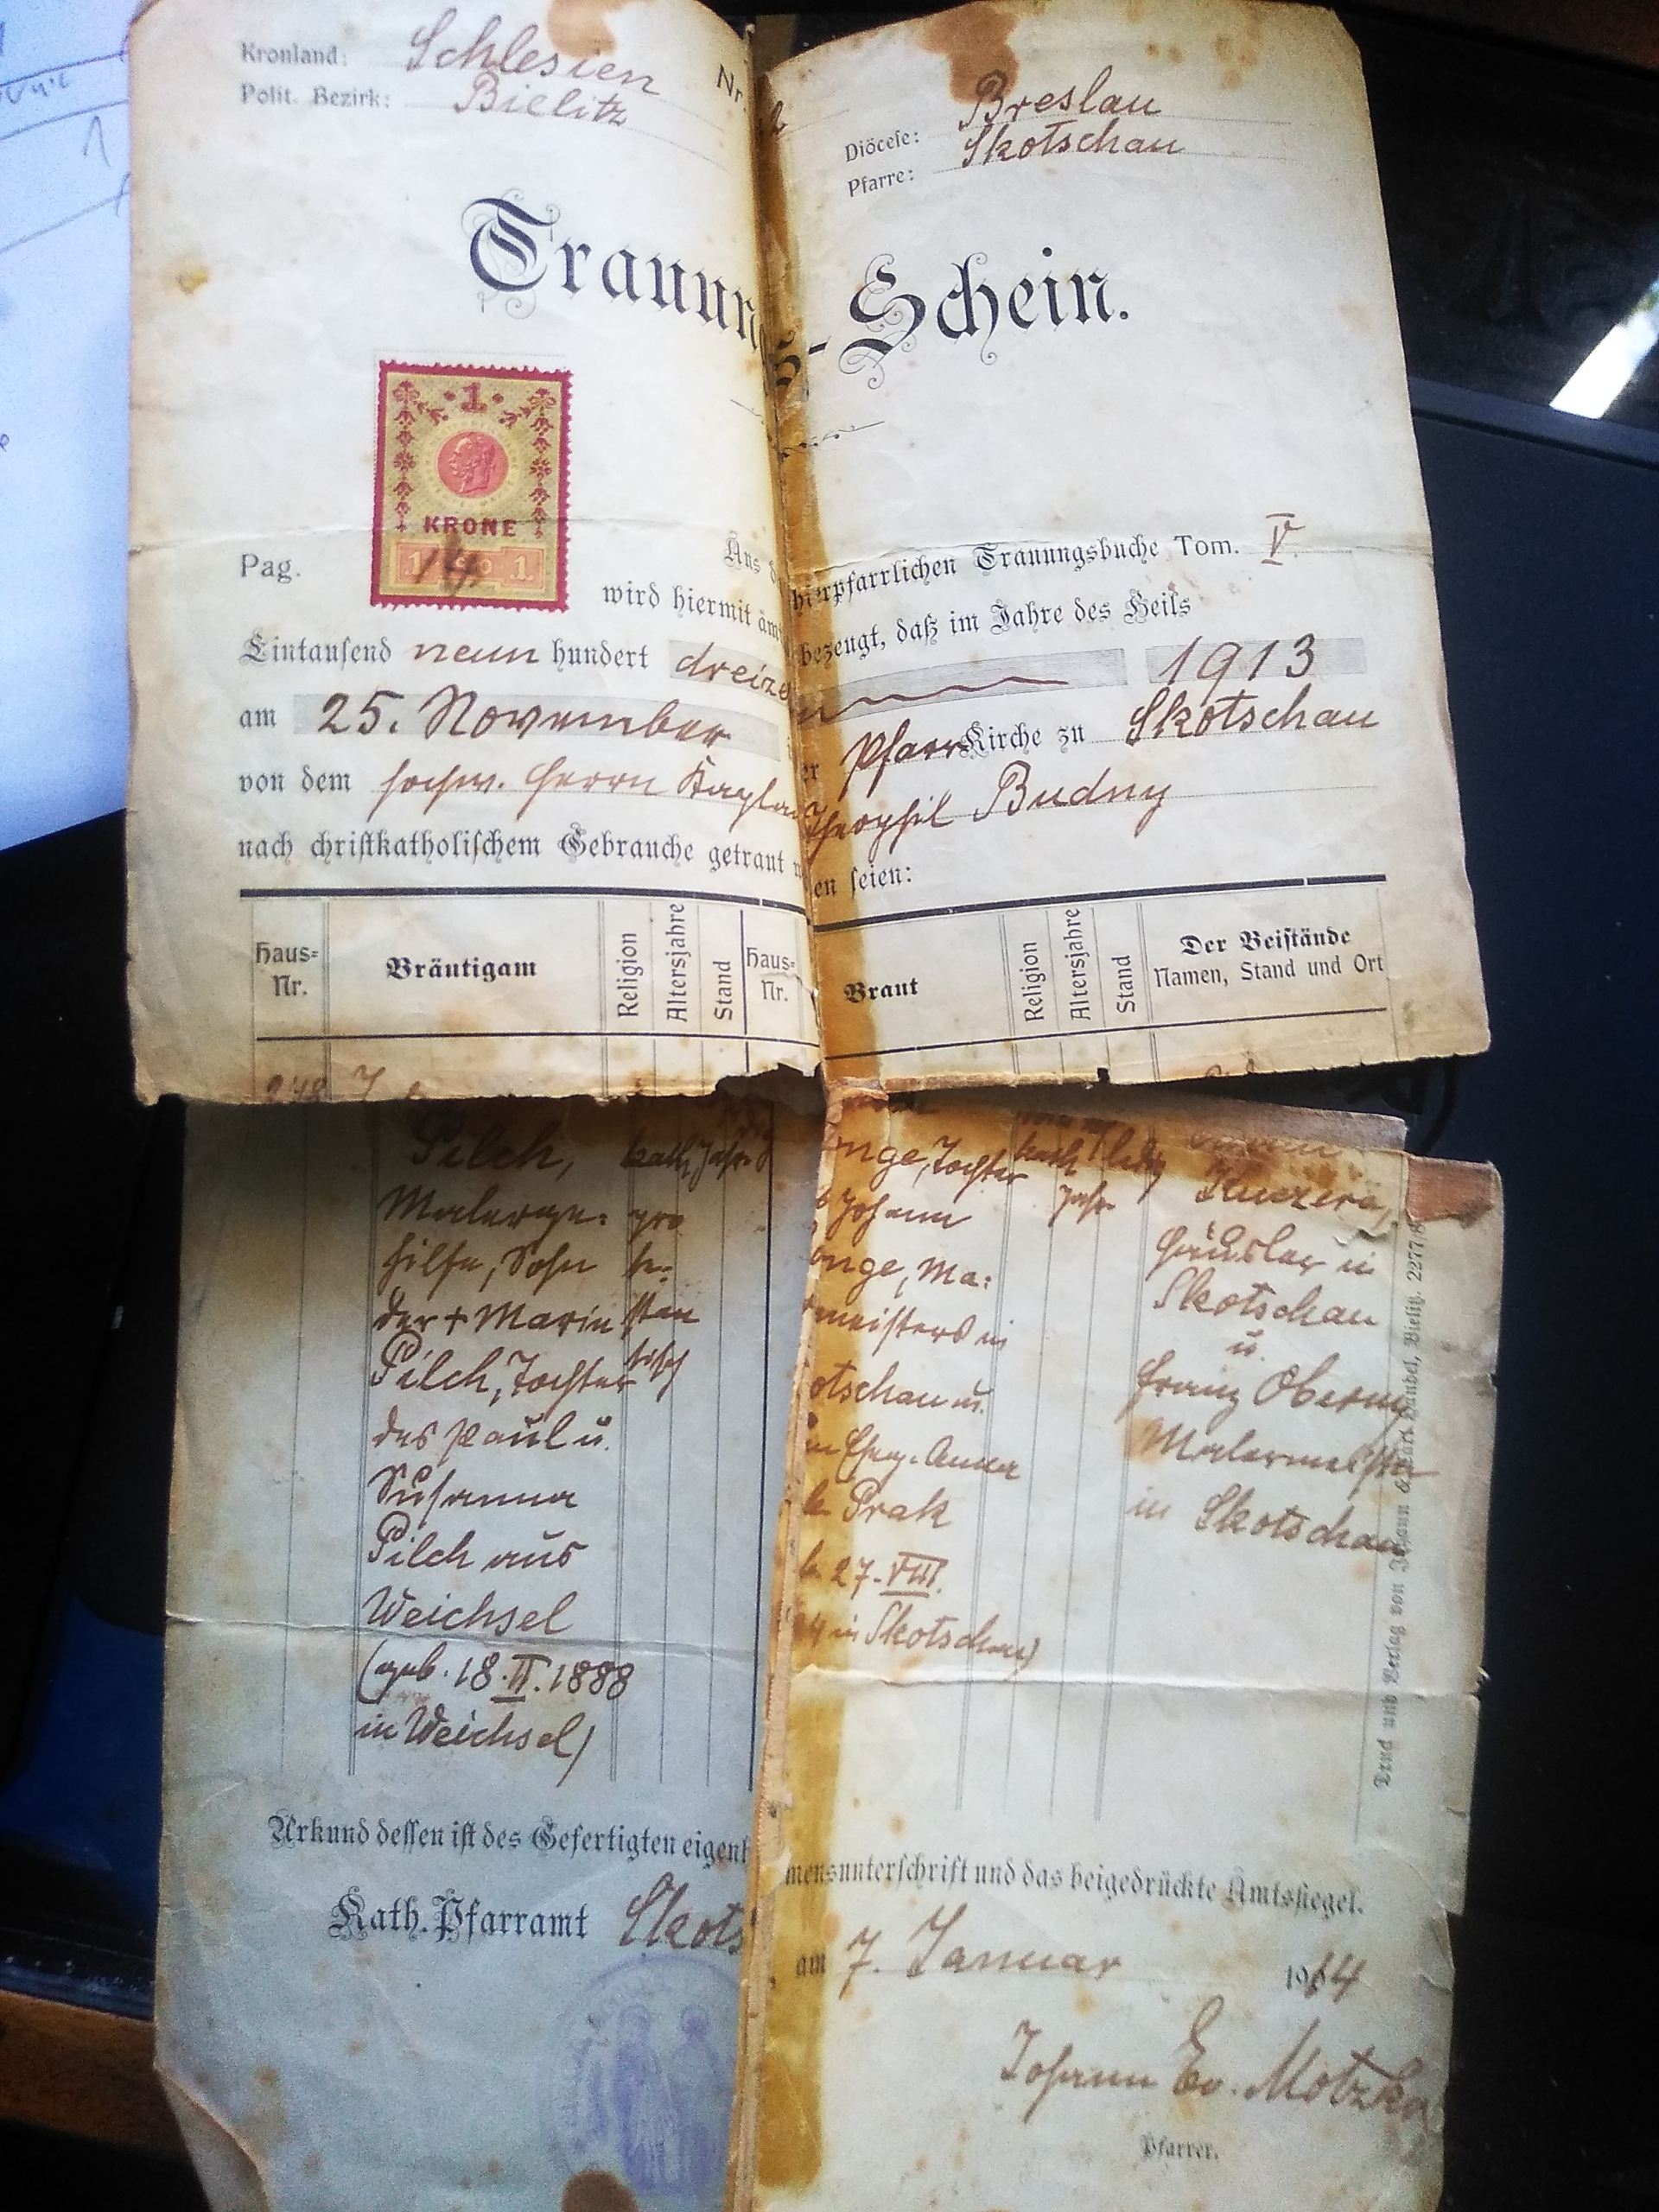 Kronland: Schlesien
Polit. Bezirk: Bielitz
Nr.
Diöcese: Breslau
Pfarre: Skotschau
Trauungs-Schein.
1
KRONE
1 1
Pag.
Aus d hierpfarrlichen Trauungsbuche Tom. V.
wird hiermit äm bezeugt, daß im Jahre des Heils
Eintausend neun hundert dreize n 1913
am 25. November er Pfarr Kirche zu Skotschau
von dem hochw. Herrn Kapla Theophil Budny
nach christkatholischem Gebrauche getraut w en seien:
Haus-Nr.
Bräutigam
Religion
Altersjahre
Stand
Haus-Nr.
Braut
Religion
Altersjahre
Stand
Der Beistände
Namen, Stand und Ort
248
Pilch,
Malerge-
hilfe, Sohn
der + Maria
Pilch, Tochter
des Paul u.
Susanna
Pilch aus
Weichsel
(geb. 18.II.1888
in Weichsel)
kath.
pro
te-
stan
tisch
Jahre
onge, Tochter
s Johann
onge, Ma-
meisters in
otschau u.
Eheg. Anna
b. Prak
b. 27. VIII.
4 in Skotschau)
kath
Jahre
ledig
Kuczera,
Häusler in
Skotschau
u.
Franz Oberny
Malermeister
in Skotschau
Druck und Verlag von Johann & Karl Handel, Bielitz. 2277/8
Urkund dessen ist des Gefertigten eigenh mensunterschrift und das beigedrückte Amtssiegel.
Kath. Pfarramt Skots , am 7. Januar 1914
Johann Ev. Motzko
Pfarrer.